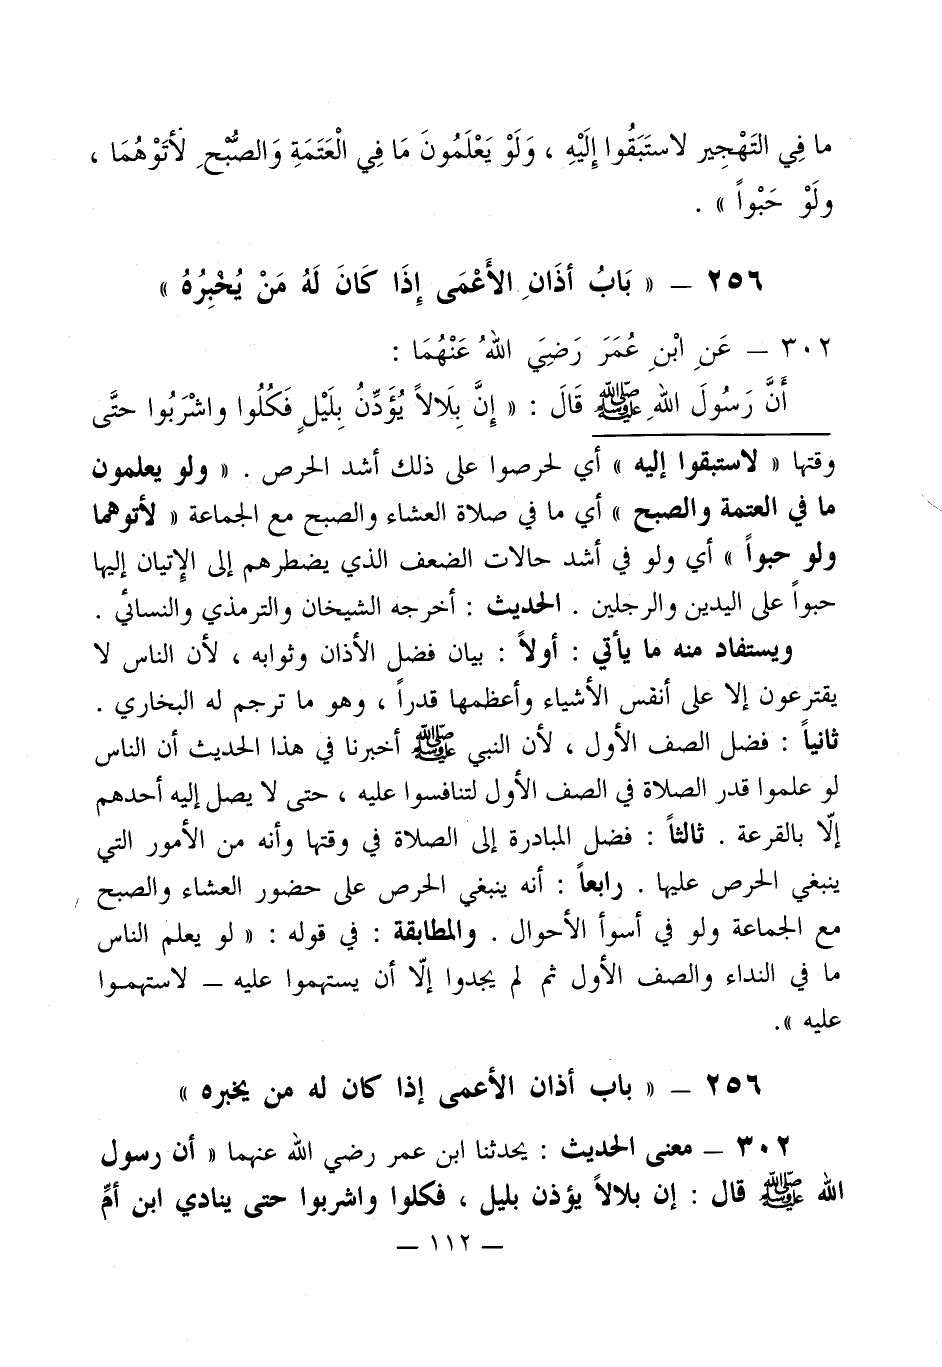 ما فِي التَهْجِيرِ لاستَبَقُوا إِلَيْهِ ، وَلَوْ يَعْلَمُونَ مَا فِي الْعَتَمَةِ وَالصُّبْحِ لأتَوْهُمَا ،
ولَوْ حَبْواً » .
٢٥٦ – « بَابُ أذَانِ الأَعْمَى إِذَا كَانَ لَهُ مَنْ يُخْبِرُهُ »
٣٠٢ – عَنِ ابْنِ عُمَرَ رَضِيَ اللهُ عَنْهُمَا :
أَنَّ رَسُولَ اللهِ ﷺ قَالَ : « إِنَّ بِلَالاً يُؤَذِّنُ بِلَيْلٍ فَكُلُوا واشْرَبُوا حتَّى
وقتها « لاستبقوا إليه » أي لحرصوا على ذلك أشد الحرص . « ولو يعلمون
ما في العتمة والصبح » أي ما في صلاة العشاء والصبح مع الجماعة « لأتوهما
ولو حبواً » أي ولو في أشد حالات الضعف الذي يضطرهم إلى الإتيان إليها
حبواً على اليدين والرجلين . الحديث : أخرجه الشيخان والترمذي والنسائي .
ويستفاد منه ما يأتي : أولاً : بيان فضل الأذان وثوابه ، لأن الناس لا
يقترعون إلا على أنفس الأشياء وأعظمها قدراً ، وهو ما ترجم له البخاري .
ثانياً : فضل الصف الأول ، لأن النبي ﷺ أخبرنا في هذا الحديث أن الناس
لو علموا قدر الصلاة في الصف الأول لتنافسوا عليه ، حتى لا يصل إليه أحدهم
إلّا بالقرعة . ثالثاً : فضل المبادرة إلى الصلاة في وقتها وأنه من الأمور التي
ينبغي الحرص عليها . رابعاً : أنه ينبغي الحرص على حضور العشاء والصبح
مع الجماعة ولو في أسوأ الأحوال . والمطابقة : في قوله : « لو يعلم الناس
ما في النداء والصف الأول ثم لم يجدوا إلّا أن يستهموا عليه – لاستهموا
عليه ».
٢٥٦ – « باب أذان الأعمى إذا كان له من يخبره »
٣٠٢ – معنى الحديث : يحدثنا ابن عمر رضي الله عنهما « أن رسول
الله ﷺ قال : إن بلالاً يؤذن بليل ، فكلوا واشربوا حتى ينادي ابن أمِّ
– ١١٢ –